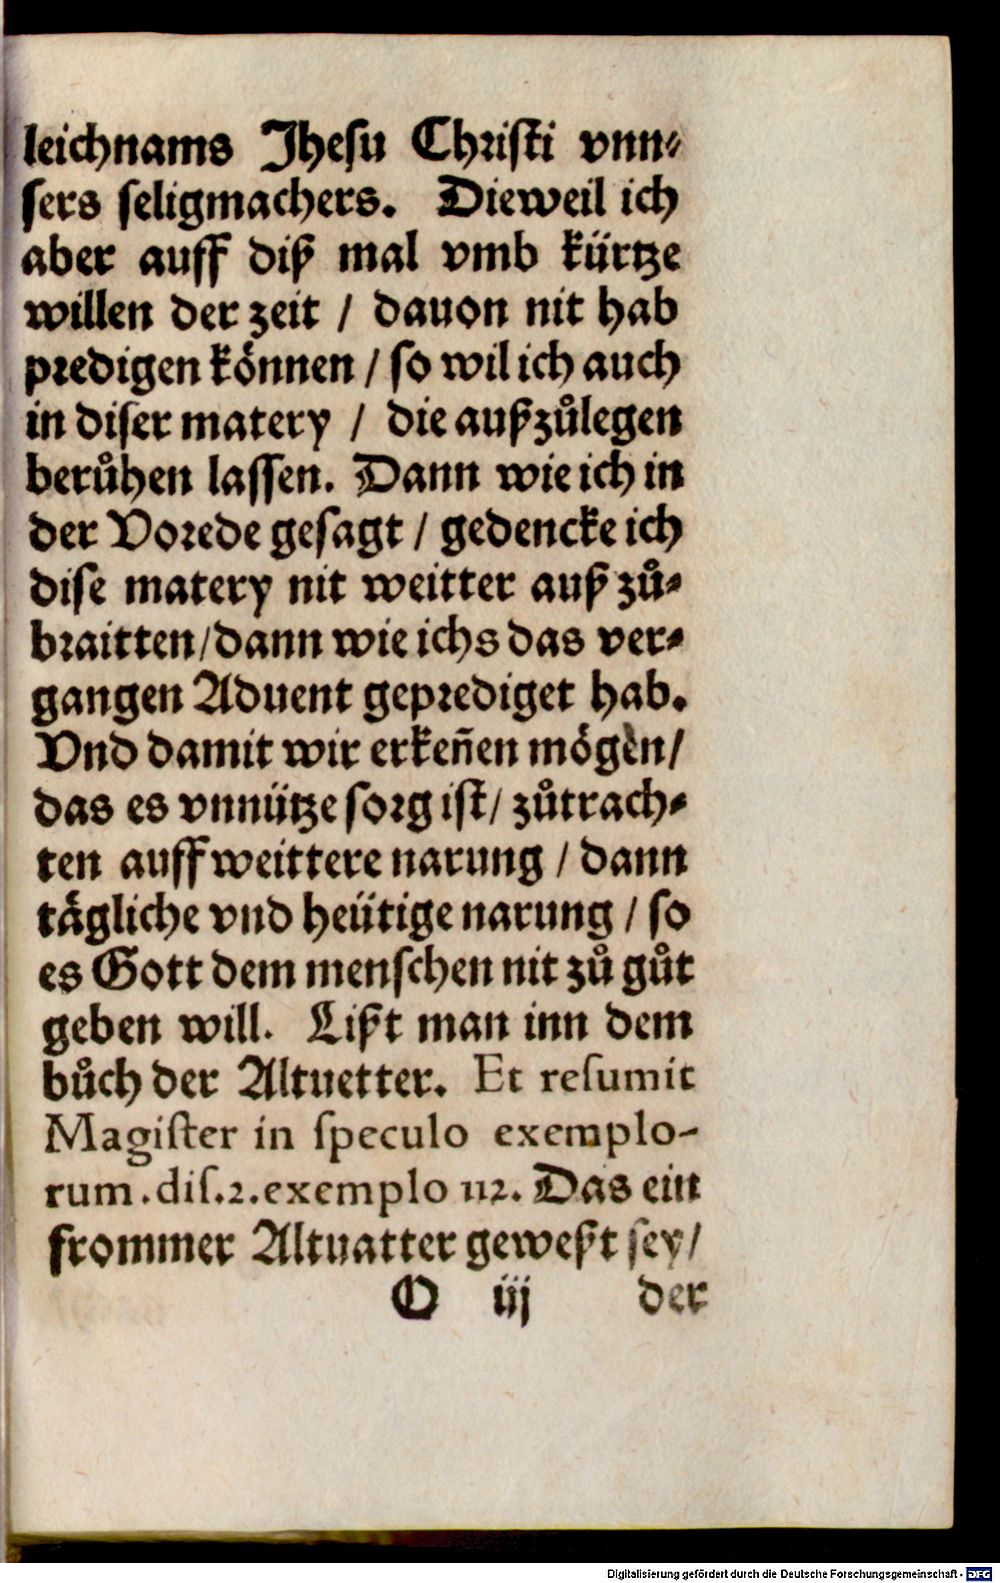 leichnams Jhesu Christi vnn⸗
sers seligmachers. Dieweil ich
aber auff diß mal vmb kürtze
willen der zeit / dauon nit hab
predigen können / so wil ich auch
in diser matery / die außzůlegen
berůhen lassen. Dann wie ich in
der Vorede gesagt / gedencke ich
dise matery nit weitter auß zů⸗
braitten / dann wie ichs das ver⸗
gangen Aduent geprediget hab.
Vnd damit wir erkeñen mögen /
das es vnnütze sorg ist / zůtrach⸗
ten auff weittere narung / dann
tägliche vnd heütige narung / so
es Gott dem menschen nit zů gůt
geben will. Lißt man inn dem
bůch der Altuetter. Et resumit
Magister in speculo exemplo-
rum. dis. 2. exemplo 112. Das ein
frommer Altuatter geweßt sey /
O iij der
Digitalisierung gefördert durch die Deutsche Forschungsgemeinschaft - DFG